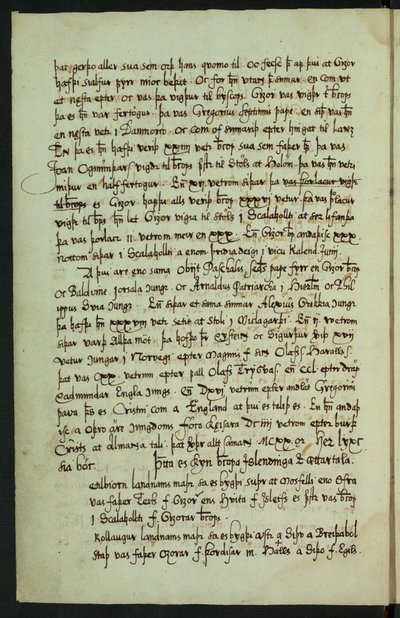 þat. gerþo aller sua sem orþ hans quomo til. Oc feck þ af þui at Gizor
hafþi sialfur fyrr mior beþit. Oc for hn utan þ sumar. en com ut
et nesta epter. oc vas þa vigþur til byscops. Gizor vas vigþr t bcops
þa es hn var fertøgur. þa vas Gregorius septimus pape. en siþ vas hn
en nesta vetr i Danmorco. Or com of sumariþ epter hingat til lanz
En þa es hn hafþi verit xxiiii vetr bcop sua sem faþer hs. þa vas
Joan Ogmundar vigdr til bcops fstr til Stols at Holom. þa vas hn vetri
miþur en half fertogur. En xii vetrom siþar þa vas þorlacur vigþr
til bcops es Gizor hafþi alls verit bcop xxxvi vetur. þa vas þlacur
vigþr til bps hn let Gizor vigia til stols i Scalaholti at ser lifanda
þa vas þorlacr ii. vetrom meir en xxx. En Gizor bp andaþisc xxx
nottom siþar i Scalaholti a enom þridia degi i vicu Kalend. Junij.
A þui are eno sama Obijt Paschalis Scds pape fyrr en Gizor bcop
Oc Baldvine Jorsala kungr. Oc Arnaldus Patriarcha i Hierlm oc Phi
ippus Svia kungr. En siþar et sama sumar Alexius Grikkia kungr
þa hafþi hn xxxviii vetr setit at Stoli i Miclagarþi. En ij. vetrom
siþar varþ Aldamót. þa hofþo þr Eysteinn oc Sigurþur veþit xvii
vetur kungar i Norvegi epter Magnus f. sinn Olafss Haralls s.
þat vas cxx. vetrum epter fall Olafs Tryggvas. en ccl. eptr drap
Eadmundar Engla kungs. En Dxvi vetrum epter andlat Gregorius
pava þss es Cristni com a England at þui es talit es. En hn andaþ
isc a oþro are kungdoms Foca keisara DC iiii vetrom epter burþ
Cristz at almannatali. þat verþr allt saman MCXX or. Her lyksc
sia bóc.
Þetta es kyn bcopa Islendinga & ættartala.
Cetilbiorn landnams maþr sa es bygþi suþr at Mosfelli eno øfra
vas faþer Teitz f. Gizorar ens hvita f. Isleifs es fstr vas bcop
i Scalaholti f. Gizorar bcops.
Rollaugur landnams maþr sa es bygþi austr a Siþo a Breiþabol
staþ vas faþer Ozorar f. þordisar m. Hallz a Siþo f. Egils.